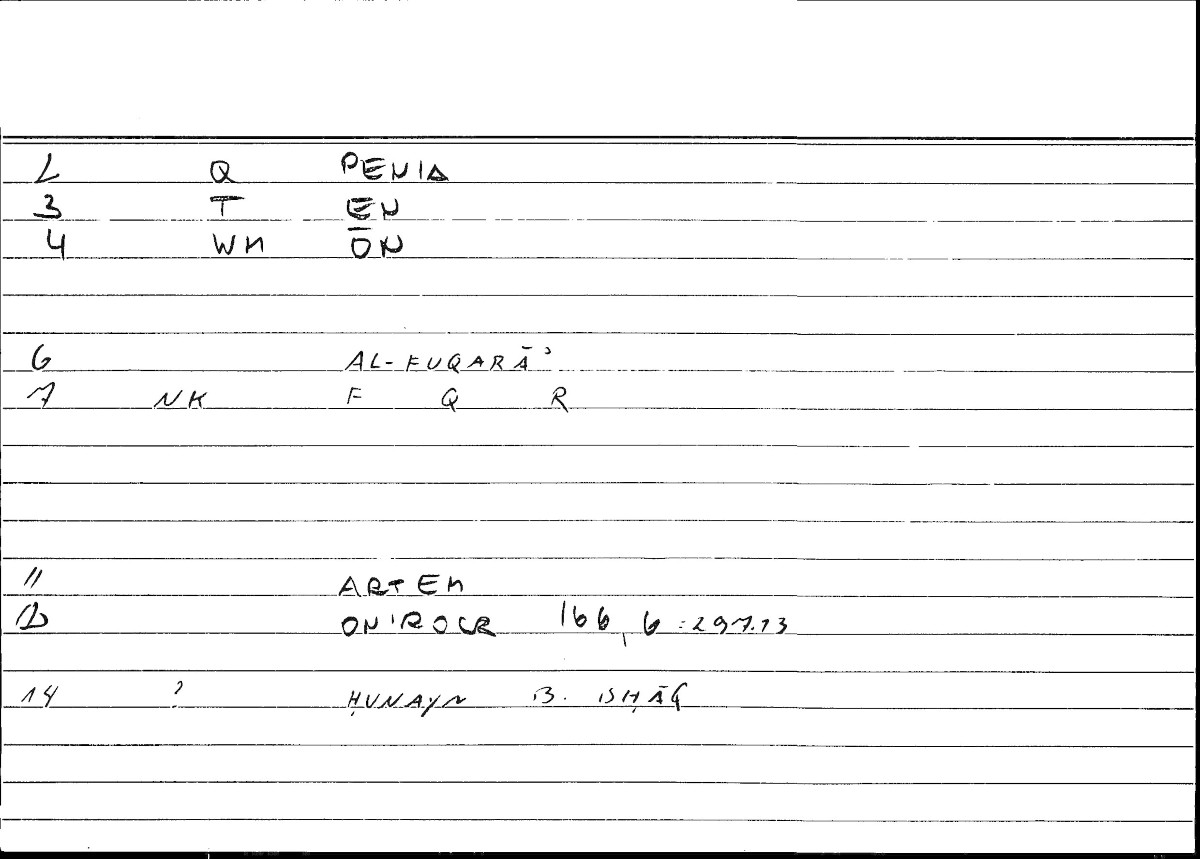 2 Q PENIA
3 T EN
4 WM ŌN
6 AL-FUQARĀʾ
7 NK F Q R
11 ARTEM
12 ONIROCR 166,6:297.13
14 ? ḤUNAYN B. ISḤĀQ